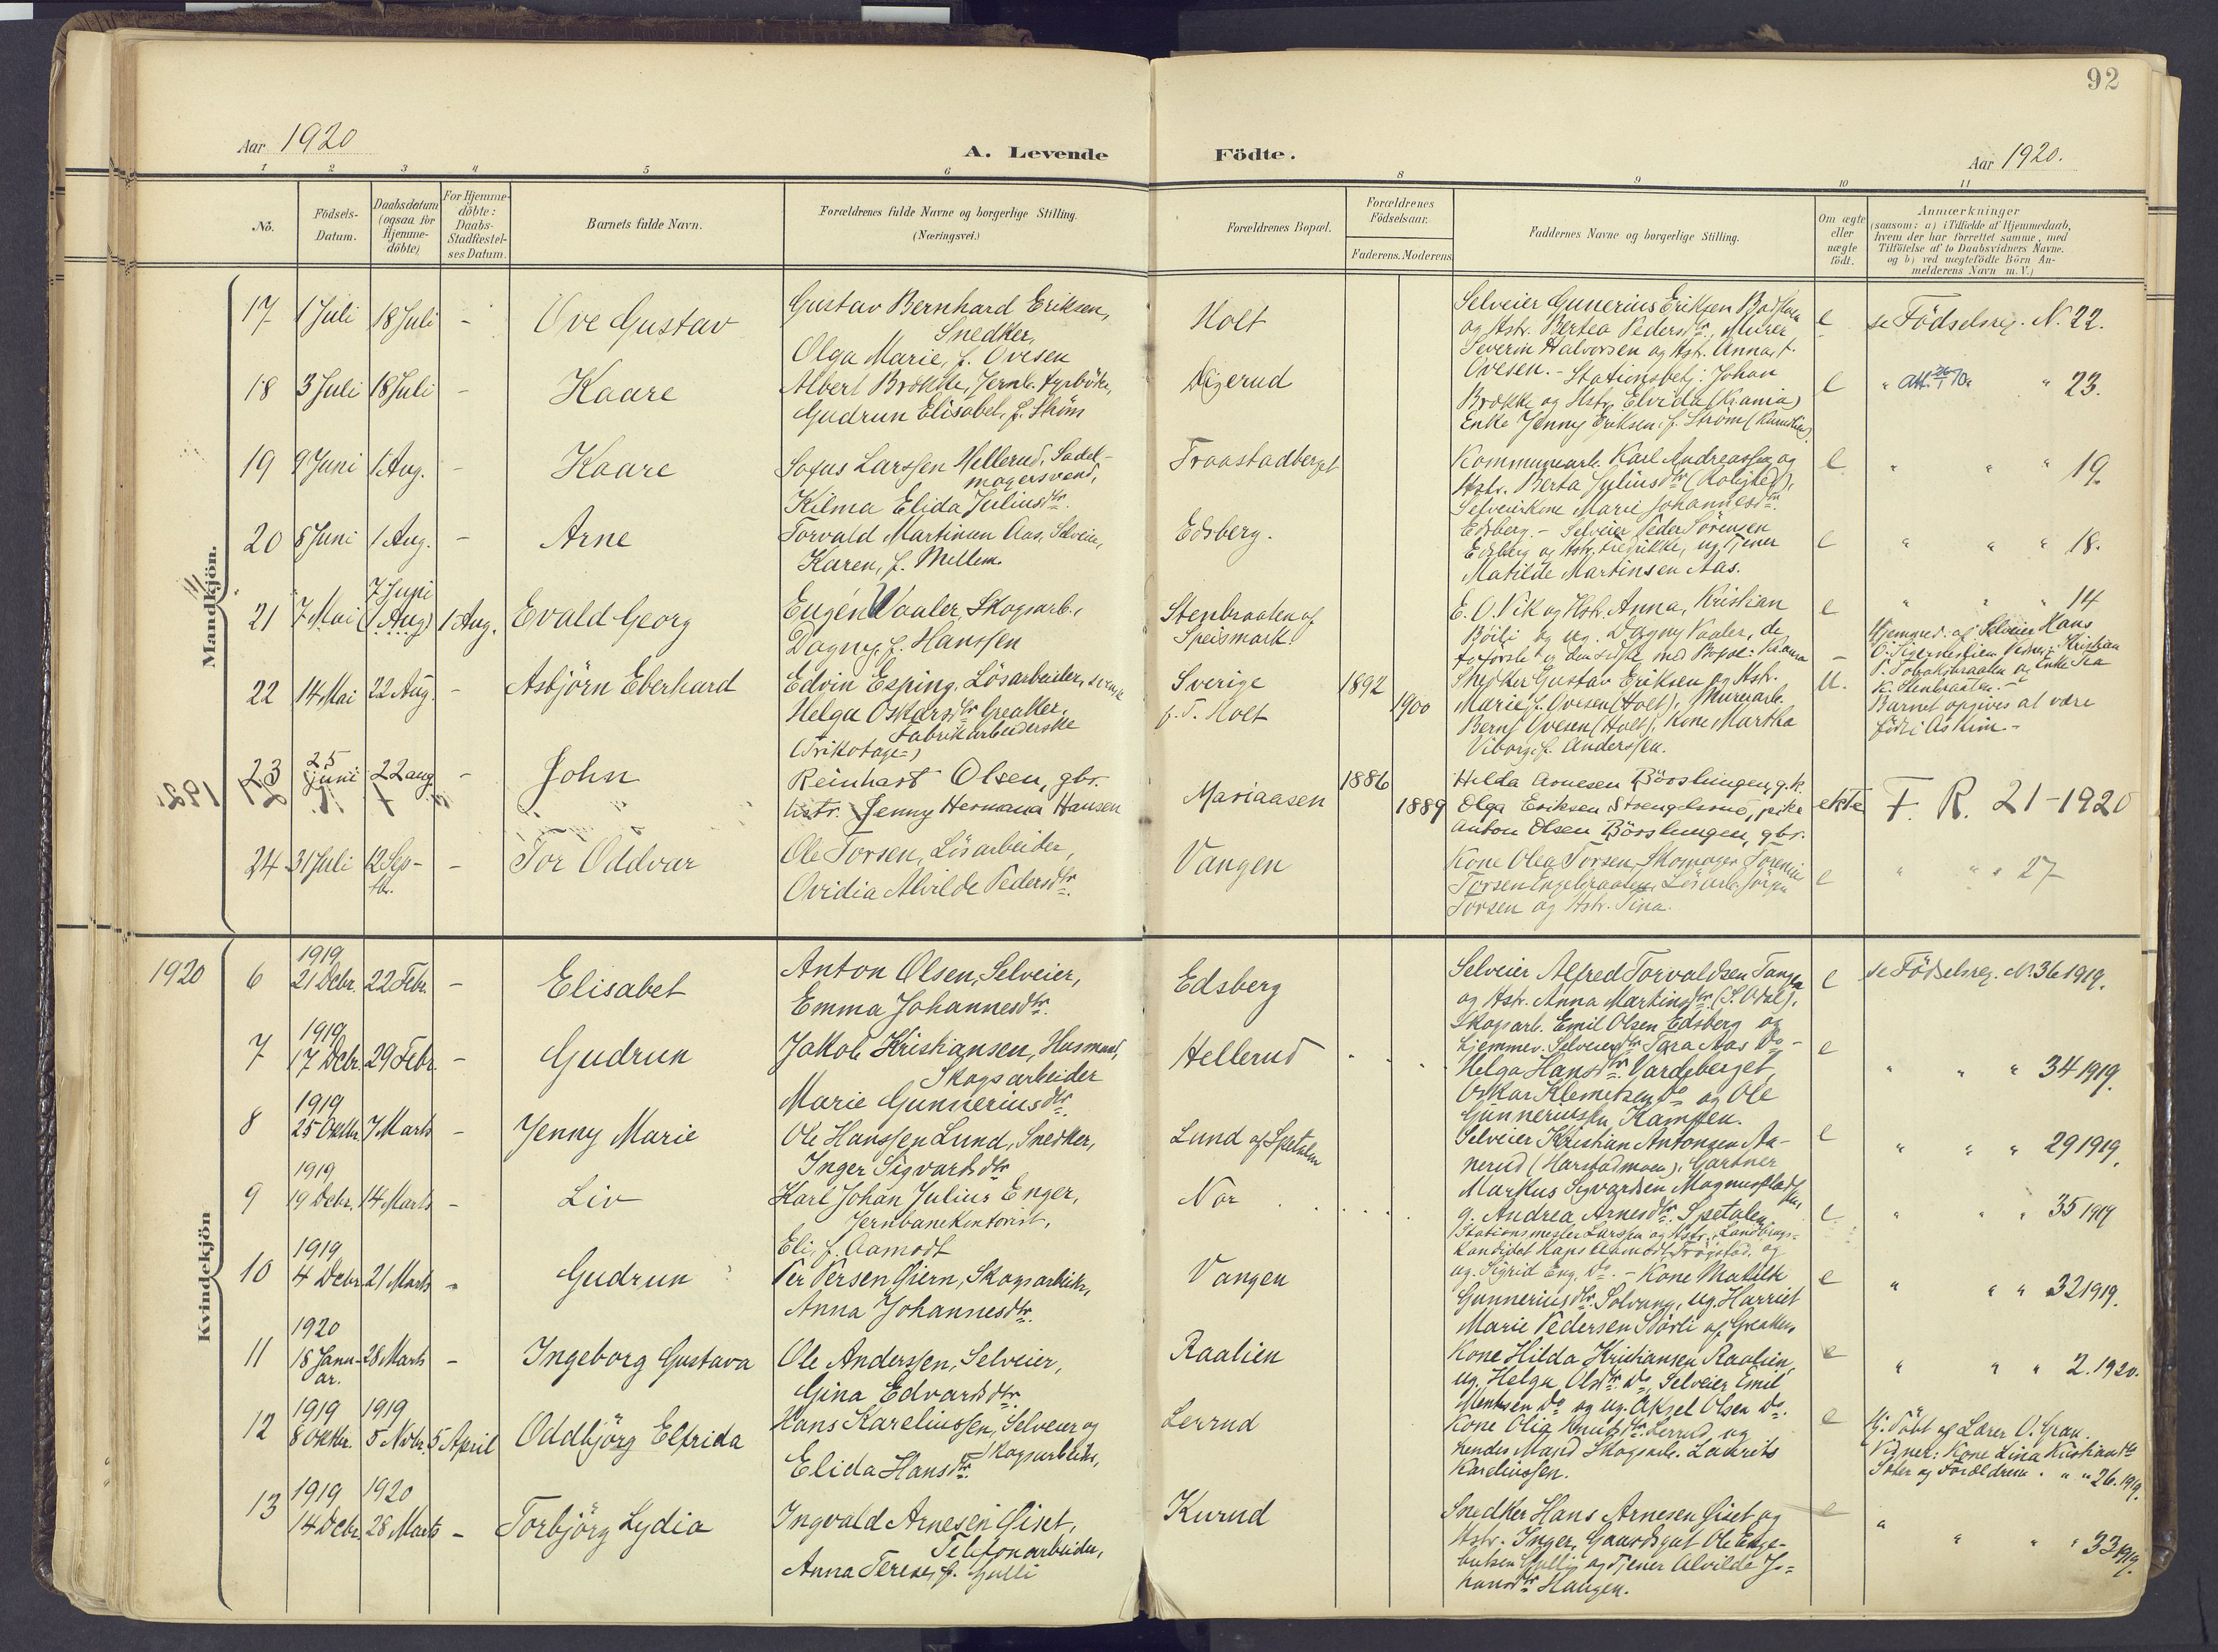 92
Aar 1920
A. Levende Födte.
Aar 1920.
1 2 3 4 5 6 8 9 10 11
No.
Födsels-Datum.
Daabsdatum (ogsaa for Hjemme-döbte)
For Hjemme-döbte: Daabs-Stadfæstel-ses Datum.
Barnets fulde Navn.
Forældrenes fulde Navne og borgerlige Stilling.
(Næringsvei.)
Forældrenes Bopæl.
Forældrenes Födselsaar.
Faderens. Moderens
Faddernes Navne og borgerlige Stilling.
Om ægte eller uægte födt.
Anmærkninger
(saasom: a) i Tilfælde af Hjemmedaab,
hvem der har forrettet samme, med
Tilföielse af to Daabsvidners Navne.
og b) ved uægtefödte Börn An-
melderens Navn m. V.)
Mandkjön.
17 1 Juli 18 Juli - Ove Gustav
Gustav Bernhard Eriksen,
Snedker,
Olga Marie, f. Ovesen
Holt
Selveier Gunerius Eriksen
og Hstr. Bertea Pedersdtr, Murer
Severin Halvorsen og Hstr. Anna, f.
Ovesen.-
e
se Födselsreg. N. 22.
18 3 Juli 18 Juli - Kaare
Albert Brække, Jernb.
Gudrun Elisabet, f. Ström
Digerud
Stationsbetj. Johan
Brække og Hstr. Elvida (Krania)
Enke Jenny Eriksen, f. Ström
e
" " 23.
19 9 Juni 1 Aug. - Kaare
Sofus Larssen Hellerud, Sadel-
magersvend,
Kilma Elida Juliusdtr.
Traastadberget
Kommunearb. Karl Andreassen og
Hstr. Berta Juliusdtr (Rolighed),
Selveierkone Marie Johannesdtr.
e
" " " 19.
20 8 Juni 1 Aug. - Arne
Torvald Martinsen Aas, Selveier,
Karen, f. Mellem.
Edsberg.
Edsberg.- Selveier Peder Sörensen
Edsberg og Hstr. Fredrikke, ug. Tjener
Matilde Martinsen Aas.
e
" " " 18.
21 7 Mai 7 Juni (1 Aug) 1 Aug. Evald Georg
Eugén Vaaler, Skogsarb.,
Dagny, f. Hanssen
Stenbraaten af
Speismark
E. O. Vik og Hstr. Anna, Kristian
Böili og ug. Dagny Vaaler, de
e
" " " 14
Hjemmed. af Selveier Hans
22 14 Mai 22 Aug. - Asbjörn Eberhard
Edvin Esping, Lösarbeider, svensk
Helga Oskarsdtr Greaker,
Fabrikarbeiderske
(Trikotage-)
Sverige
p. T. Holt
1892
1900
Snedker Gustav Eriksen og Hstr.
Marie, f. Ovesen (Holt), Murerarb.
Bernt Ovesen (Holt), Kone Martha
Viborg, f. Anderssen.
u.
Barnet opgives at være
född i Askim.-
23 25 juni 22 aug - John
Reinhart Olsen, gbr.
hstr. Jenny Hermana Hansen
Mariaasen
1886
1889
Hilda Arnesen Börslungen, g.k.
Olga Eriksen Strengelsrud, pike
Anton Olsen Börslungen, gbr.
ekte
F. R. 21-1920
24 31 Juli 12 Sep-tb. - Tor Oddvar
Ole Torsen, Lösarbeider,
Ovidia Alvilde Pedersdtr.
Vangen
Kone Olea Torsen, Skomager
Torsen Engebraaten, Lösarb. Jörgen
Torsen og Hstr. Tina.
e
" " " 27
Kvindekjön
1920
6 1919 21 Debr. 22 Febr. - Elisabet
Anton Olsen, Selveier,
Emma Johannesdtr.
Edsberg
Selveier Alfred Torvaldsen Tangen
og Hstr. Anna Martinsdtr (S. Odal),
Skogsarb. Emil Olsen Edsberg og
hjemmev. Selveierdtr Tora Aas do-
e
se Födselsreg. N. 36 1919.
7 1919 17 Debr. 29 Febr. - Gudrun
Jakob Kristiansen, Husmand,
Skogsarbeider
Marie Gunneriusdtr.
Hellerud
Helga Hansdtr Vardeberget,
Oskar Klemetsen do og Ole
Gunneriussen Kampen.
e
" " " 34 1919.
8 1919 25 Oktbr. 7 Marts - Jenny Marie
Ole Hanssen Lund, Snedker,
Inger Sigvartsdtr
Lund af Spetalen
Selveier Kristian Antonsen Aa-
nerud (Harstadmoen), Gartner
Markus Sigvardsen
g. Andrea Arnesdtr. Spetalen
e
" " " 29 1919.
9 1919 19 Debr. 14 Marts - Liv
Karl Johan Julius Enger,
Jernbanekontorist,
Eli, f. Aamodt
Nor
Stationsmester Larssen og Hstr., Landbrugs-
kandidat Hans Aamodt, Trögstad, og
ug. Sigrid Eng, do.-
e
" " " 35 1919
10 1919 4 Debr. 21 Marts - Gudrun
Per Persen Gjern, Skogsarbeider,
Anna Johannesdtr.
Vangen
Kone Matilde
Gunneriusdtr. Solvang, ug. Harriet
Marie Pedersen Störli af Greaker,
e
" " " 32 1919.
11 1920 18 Janu-ar. 28 Marts - Ingeborg Gustava
Ole Anderssen, Selveier,
Gina Edvardsdtr.
Raalien
Kone Hilda Kristiansen Raalien,
ug. Helga Olsdtr. do, Selveier Emil
do og ug. Aksel Olsen do.
e
" " " 2. 1920.
12 1919 8 Oktbr. 1919 5 Novbr. 5 April Oddbjörg Elfrida
Hans Kareliussen, Selveier og
Skogsarbeider,
Elida Hansdtr.
Lerrud
Kone Olia Knutsdtr. Lerrud, og
hendes Mand Skogsarb. Laurits
Kareliussen.
e
Hj. döbt af Lærer O. Grav.
Vidner: Kone Lina Kristiansdtr
og Forældrene. " " 26. 1919.
13 1919 14 Debr. 1920 28 Marts - Torbjörg Lydia
Ingvald Arnesen Giset,
Telefonarbeider,
Anna Terese, f. Gulli
Kurud
Snedker Hans Arnesen Giset og
Hstr. Inger, Gaardsgut Ole Enge-
bretsen Gulli og Tjener Alvilde Jo-
hansdtr. Haugen.
e
" " " " 33 1919.